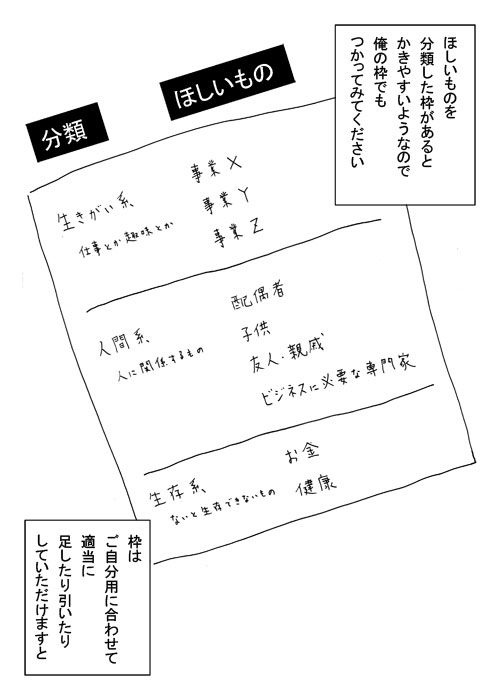 ほしいものを
分類した枠があると
かきやすいようなので
俺の枠でも
つかってみてください
分類
ほしいもの
生きがい系
仕事とか趣味とか
事業X
事業Y
事業Z
人間系
人に関係するもの
配偶者
子供
友人・親戚
ビジネスに必要な専門家
生存系
ないと生存できないもの
お金
健康
枠は
ご自分用に合わせて
適当に
足したり引いたり
していただけますと